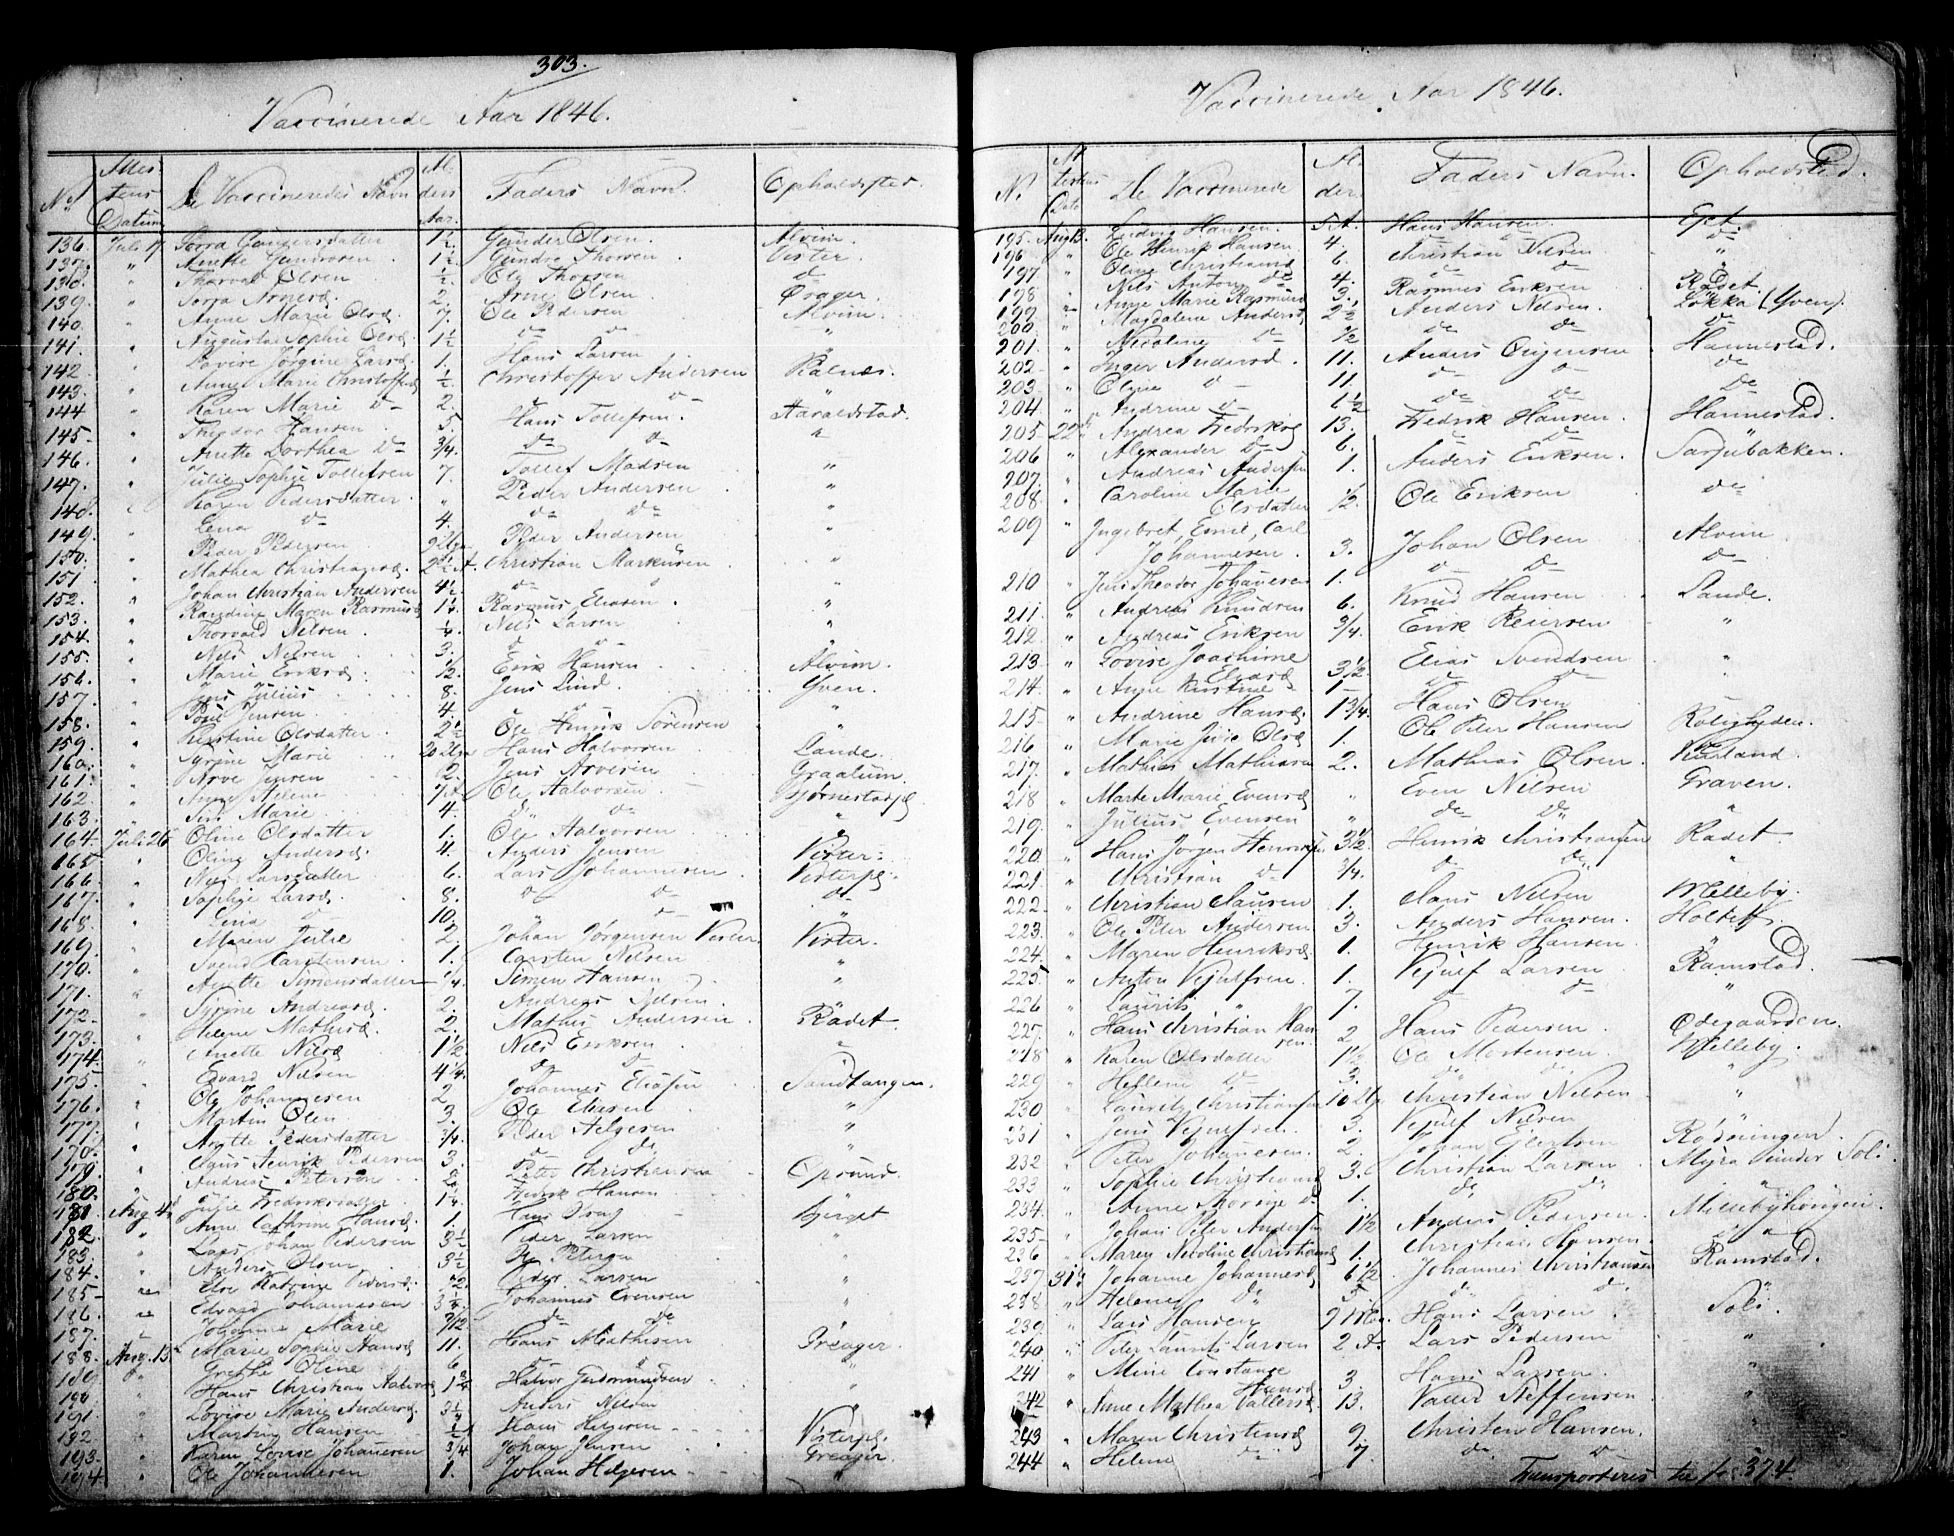 303.
Vaccinerede Aar 1846.
No Attes tens Datum De Vaccineredes Navn Al ders Aar. Faders Navn. Opholdssted.
136. Juli 17 Gundersdatter 1½ Gunder Olsen. Alvim.
137. " Anette 1½ Thorsen Vister.
138. " Thorval Olsen ½ Ole Thorsen do
139. " Arnesd. 2. Arne Olsen Græger.
140. " Anne Marie Olsd. 7. Ole Pedersen Alvim.
141. Augusta Sophie Olsd. 1½ do do "
142. " Lovise Jørgine Larsd. 1. Hans Larsen "
143. " Anne Marie Christoffersd. ½ Christoffer Andersen Kalnes.
144 " Karen Marie do 2. do "
145. " Theodor Hansen 5. Hans Tollefsen. Haraldstad.
146. " Anette Dorthea do 3/4. do do "
147. " Julie Sophie Tollefsen 7. Tollef Madsen "
148. Karen Pedersdatter " Peder Andersen "
149. " Lena do 4. do do "
150. Peder Pedersen 9 Peder Andersen "
151 " Mathea Christiansd. 2½ A. Christian Markusen "
152. " Johan Christian Andersen 4½ do "
153. " Randine Maren Rasmusd. 1¼ Rasmus Eliasen "
154. " Thorvald Nilsen ¼. Nils Larsen "
155. " Nils Nilsen 3. do do
156. " Marie Eriksd. ½. Erik Hansen Alvim.
157. " Jens Julius 8. Jens Lind. Yven.
158. " Jensen 4. do "
159. " Kirstine Olsdatter 2½ Ole Henrik Sörensen "
160. " Syrine Marie 20 Hans Halvorsen Sande.
161. " Arve Jensen 2. Jens Arvesen Graalum.
162. " Anne Helene 7 A. Ole Halvorsen Bjørnestadpl.
163. " Marie 4. do do "
164. Juli 26 Oline Olsdatter 1. Ole Halvorsen "
165 " Oline Andersd. 4. Anders Jensen Vister.
166. " Larsdatter 6. Lars Johannesen. Visterpl.
167. " Sophie Larsd. 8. do do do
168. " Lina do 10. do "
169. " Maren Julie 2. Johan Jørgensen Vister. Vister.
170. " Svend Carstensen 1. Carsten Nilsen "
171. " Anette Simensdatter 1/4. Simen Hansen "
172. " Syrine Andreasd. 2. Andreas "
173. " Helene Mathisd. 2. Mathis Andersen Rådet
174. " Anette Nilsd. 1½ Nils Eriksen "
175. " Edvard Nilsen 4¼. do do
176. " Ole Johannesen 2 Johannes Eliasen Sandtangen.
177. " Martin Olsen 3. Ole Eliasen "
178. " Anette Pedersdatter 3/4. Peder Helgesen "
179. " Claus Henrik Pedersen 3. do do
180. " Andreas Petersen Peter Christiansen Oprund.
181 Aug 4. Julie Fredriksdatter 1¼ Fredrik Hansen "
182. " Anne Cathrine Hansd. 1. Hans Bjerget
183. " Lars Johan Pedersen 3½ Peder Larsen "
184. " Anders Olsen 3½
185 " Katrine Pedersd. Peder Larsen "
186. " Edvard Johannesen 3¼ Johannes Evensen "
187. " Johanne Marie 9/12. do do
188. Aug. 13 Marie Sophie Hansd. 11. Hans Mathisen Greager.
189 " Grethe Oline 6 do
190 " Hans Christian Halvors. 1¾ Halvor Gudmundsen "
191. " Lovise Marie Andersd. 3½ Anders Nilsen "
192 " Martin Hansen ½ Hans Helgesen "
193. " Karen Lovise Johannesen 3/4 Johan Jensen Visterpl.
194. " Ole Johannesen 1. Johan Helgesen Greager.
Vaccinerede Aar 1846.
No. At testens Date De Vaccinerede Al der. Faders Navn. Opholdssted.
195. Aug 13. Ludvig Hansen. 5 A. Hans Hansen. Eget.
196 " Ole Henrik Hansen 4. do do
197 " Oline Christiansd. 6. Christian Nilsen "
198 " Nils Antony do 4. do do "
199 " Anne Marie Rasmusd. 3. Rasmus Eriksen Rådet.
200. " Magdalene Andersd. 2½ Anders Nilsen Løkka (Yven).
201. " Nicoline do ½ do do do
202. " Inger Andersd. 11. Anders Hannestad.
203. " Oline do 11. do do do
204. " Andrine do 1½ do do do
205. 22. Andrea Fredriksd. 13. Fredrik Hansen Hannestad.
206 " Alexander do 6. do do
207. " Andreas Andersen 1. Anders Eriksen. Sarpsbakken.
208 " Caroline Marie
Olsdatter ½. Ole Eriksen do
209 " Ingebret Emil, Carl
Johannesen. 3. Johan Olsen Alvim
210 " Jens Theodor Johannesen 1. do do do
211. " Andreas Knudsen 6. Knud Hansen Sande.
212. " Andreas Eriksen 3/4. Erik Reiersen "
213. " Lovise Joachime
Eliasd. 3½ Elias Svendsen "
214. " Anne Kirstine 1 do do "
215. " Andrine Hansd. 1¾. Hans Olsen "
216 " Marie Julie Olsd. 1. Ole Peter Hansen Rolighyden.
217. " Mathias Mathiasen 2. Mathias Olsen. Kurland
218 " Marte Marie Evensd. " Even Nilsen Graven.
219. " Julius Evensen do do "
220. " Hans Jørgen Henriksen 3½. Henrik Christiansen Rådet
221. " Christian do 3/4. do do "
222. " Christian Clausen 1. Claus Nilsen Melleby.
223. " Ole Peter Andersen 3. Anders Hansen. Holtet.
224. " Maren Henriksd. 1. Henrik Hansen "
225. " Anton Vejulfsen. 1. Vejulf Larsen Ramstad.
226 " Laurits " 7. do do "
227. " Hans Christian Han
sen. 2 Hans Pedersen Ødegaarden.
228 " Karen Olsdatter 1½ Ole Mortensen. Melleby.
229 " Hellene do 3. do do
230 " Lauritz Christiansen 10 Christian Nilsen "
231 " Jens Vejulfsen. 3. Vejulf Nilsen "
232 " Peter Johannesen. 2. Johan Ellertsen Rødsningen.
233 " Sophie Christiansd. 3. Christian Larsen Myra under Soli.
234. " Anne do 1. do do "
235. " Johan Peter Andersen 1½ Anders Pedersen. Millebyhougen.
236 " Maren Nicoline Christiansd. 1. Christian Hansen. do
237 31. Johanne Johannesd. 6½ Johannes Christiansen Ramstad.
238 " Helene do 5. do do "
239. " Lars Hansen 9 Hans Larsen Soli.
240 " Peter Laurits Larsen 2 A. Lars Pedersen "
241 " Mine Constance
Hansd. 3 Hans Larsen "
242 " Anne Mathea Vallersd. 13. Valler Steffensen "
243 " Maren Christensd. 9. Christen Hansen. "
244 " Helene do 7 do do "
Transporteres til fol. 374